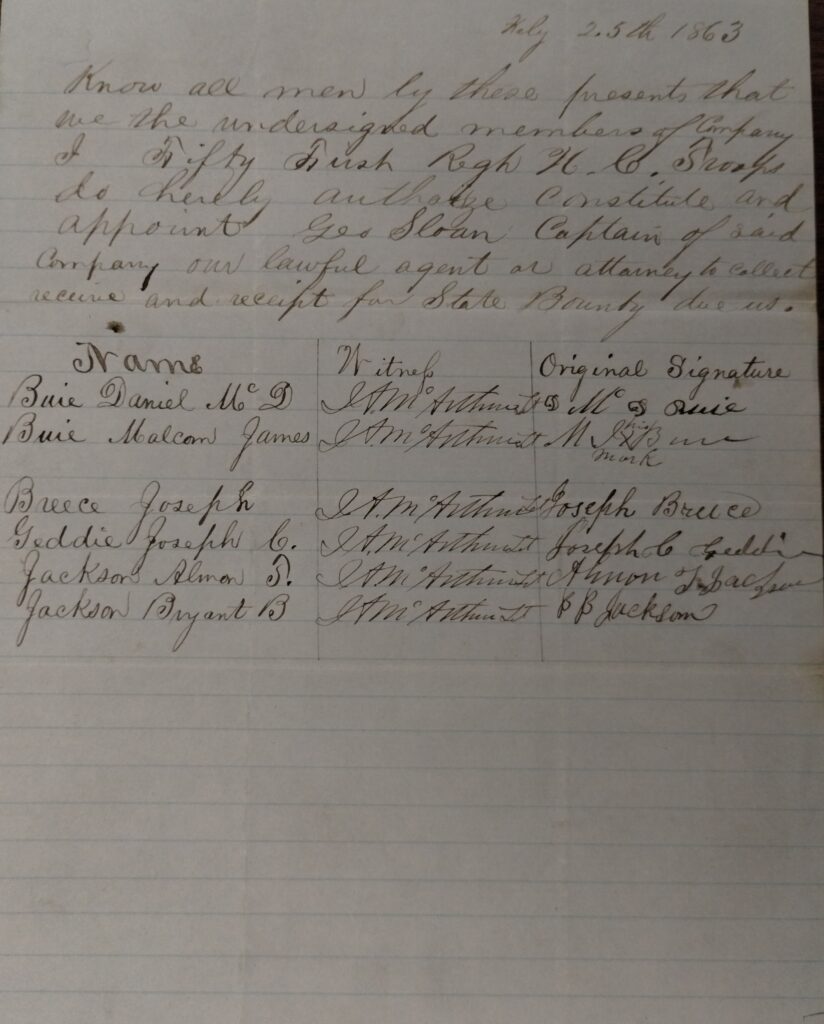 Feby 25th 1863
Know all men by these presents that
we the undersigned members of Company
I Fifty First Regt N. C. Troops
do hereby authorize constitute and
appoint Geo Sloan Captain of said
Company our lawful agent or attorney to collect
receive and receipt for State Bounty due us.
Name Witness Original Signature
Buie Daniel Mc D J A McArthur Lt D Mc D Buie
Buie Malcom James J A McArthur Lt M J his X Buie
mark
Breece Joseph J A McArthur Lt Joseph Breece
Geddie Joseph C. J A McArthur Lt Joseph C Geddie
Jackson Almon T. J A McArthur Lt Almon T Jackson
Jackson Bryant B J A McArthur Lt B B Jackson